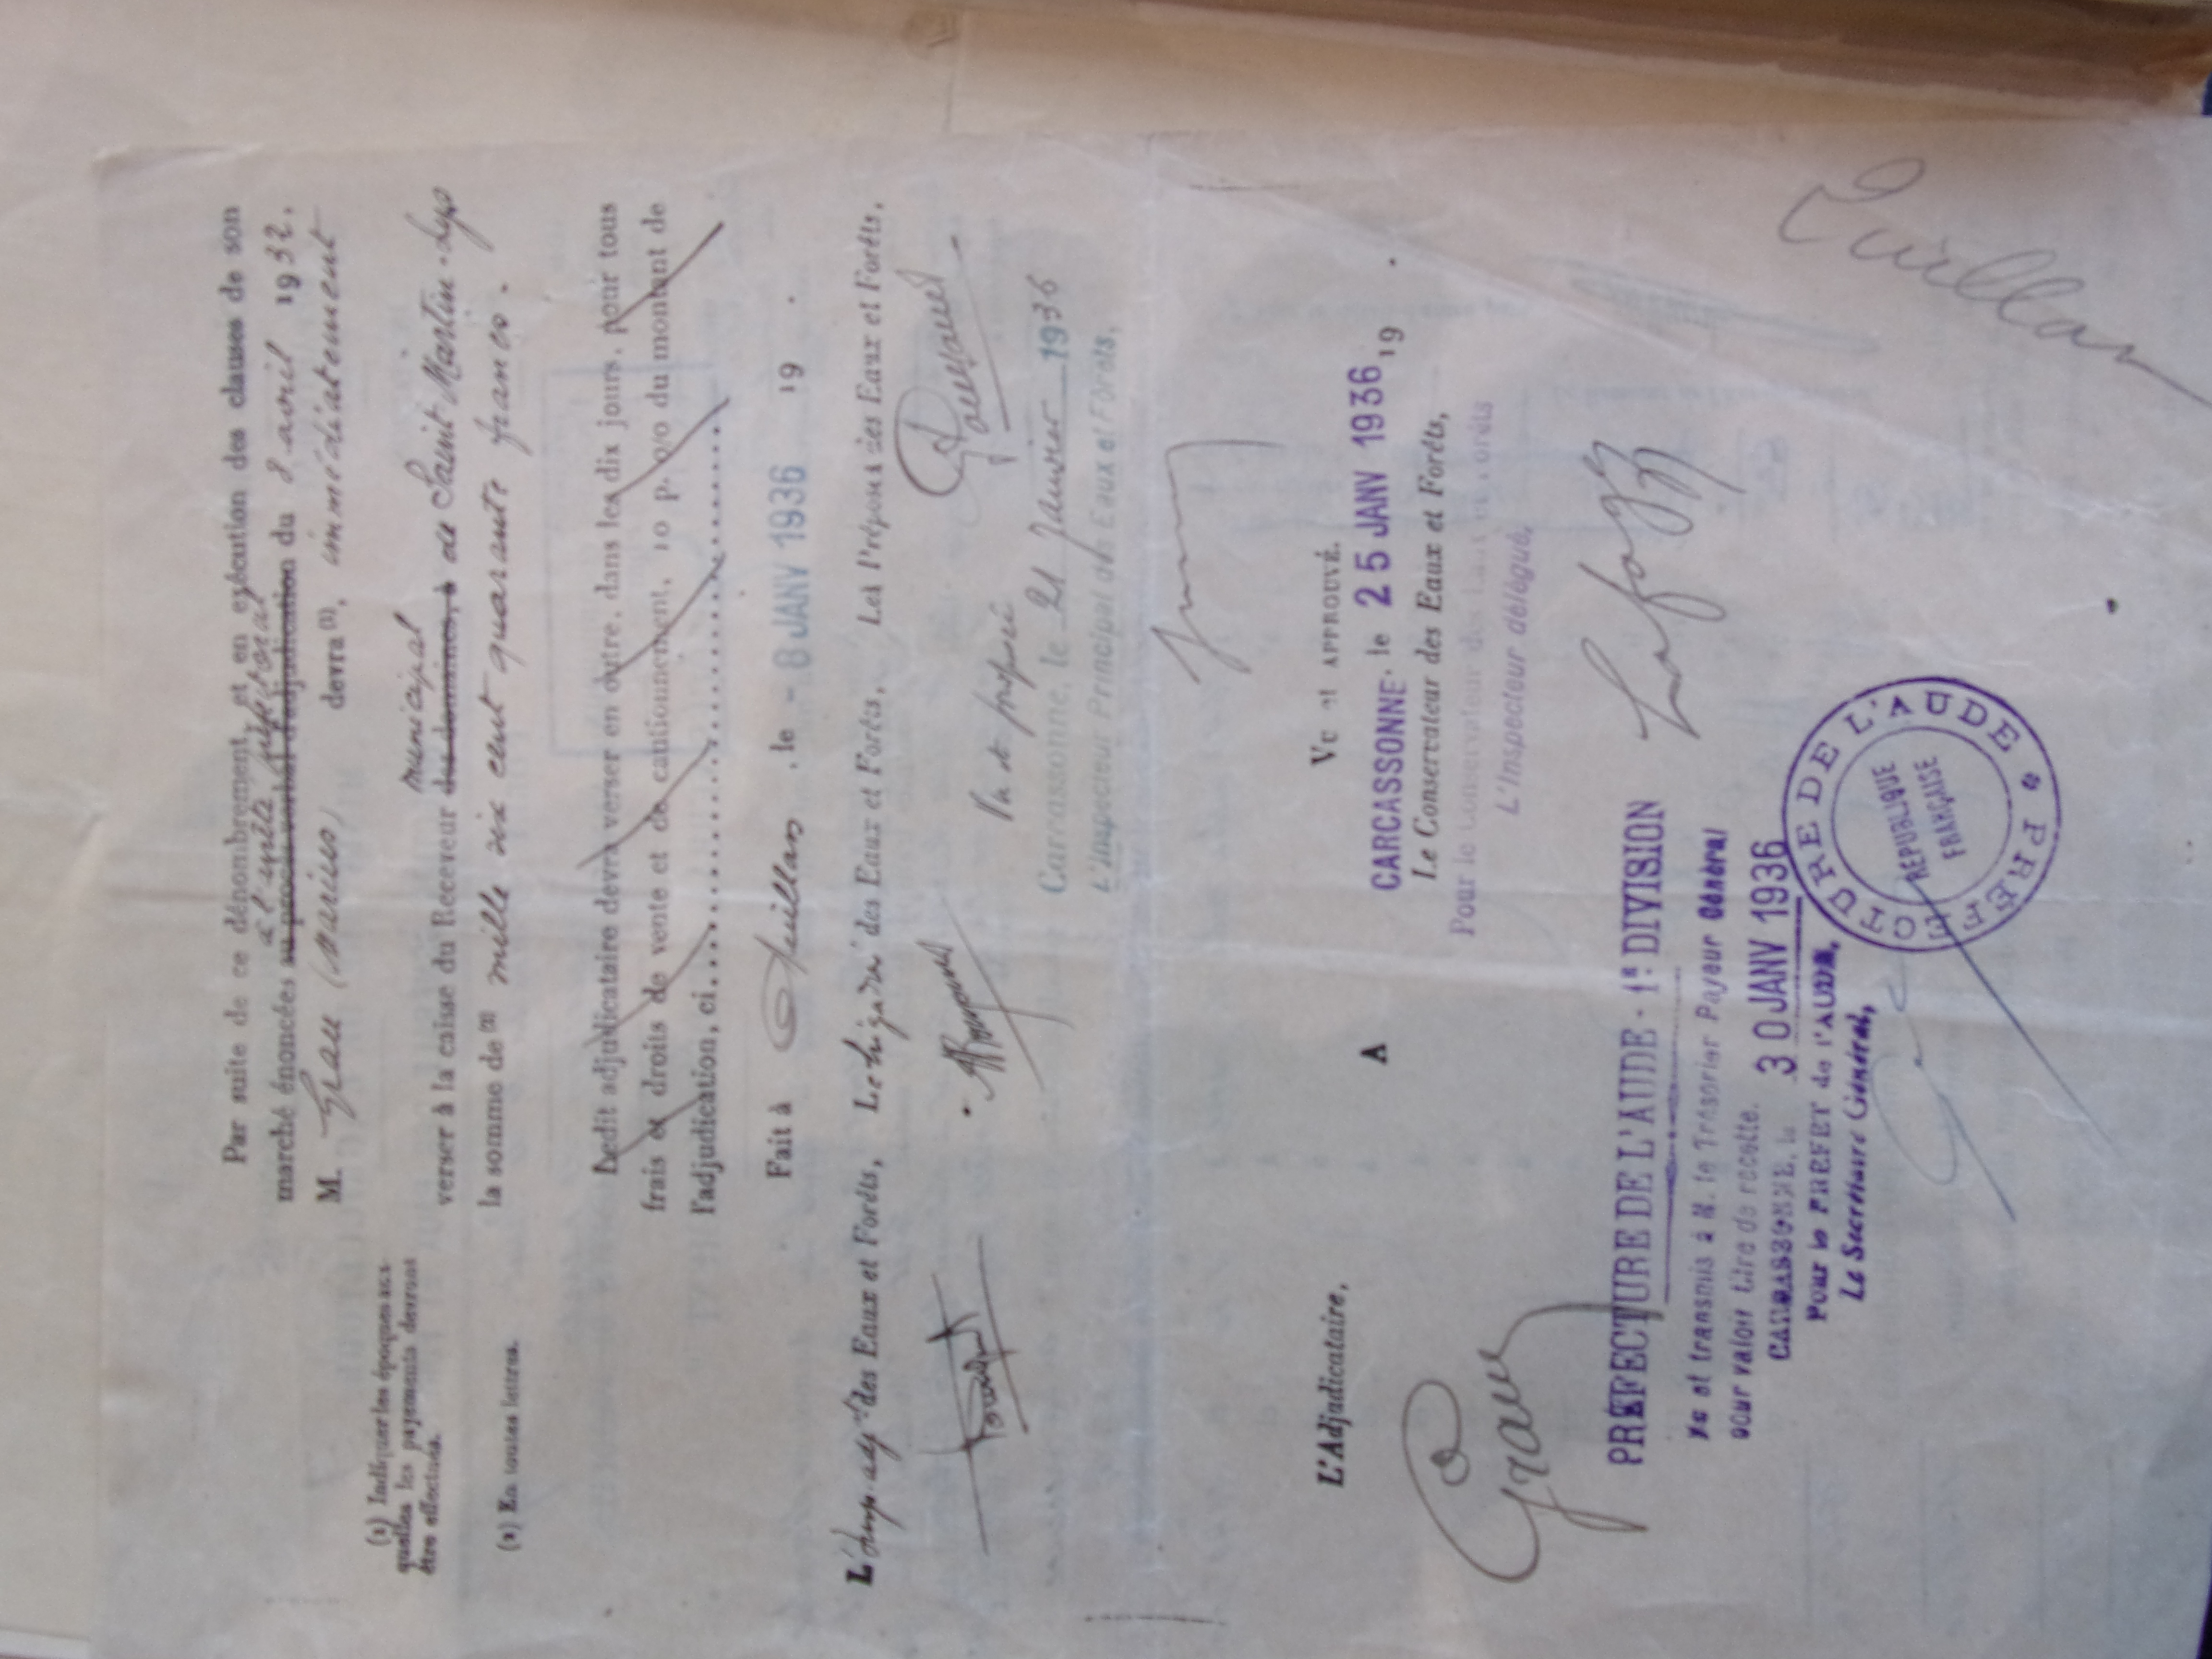 Par suite de ce dénombrement, et en exécution des clauses de son
à l'arrêté préfectoral
marché énoncées au procès verbal d'adjudication du 8 avril 1932.
M. Grau (Marius) devra (1), immédiatement
(1) Indiquer les époques aux-
quelles les payements devront
être effectués.
municipal
verser à la caisse du Receveur des domaines, à de Saint Martin-Lys
la somme de (2) mille six cent quarante francs.
(2) En toutes lettres.
Ledit adjudicataire devra verser en outre, dans les dix jours, pour tous
frais et droits de vente et de cautionnement, 10 p. 0/0 du montant de
l'adjudication, ci........................................
Fait à Quillan, le - 8 JANV 1936 19 .
L'Insp. adjt des Eaux et Forêts, Le brigadier des Eaux et Forêts, Les Préposés des Eaux et Forêts,
Vu et proposé
Carcassonne, le 21 Janvier 1936
L'Inspecteur Principal des Eaux et Forêts,
L'Adjudicataire,
Vu et APPROUVÉ.
A CARCASSONNE, le 25 JANV 1936, 19 .
Le Conservateur des Eaux et Forêts,
Pour le Conservateur des Eaux et Forêts
L'Inspecteur délégué,
Grau
Lafage
PRÉFECTURE DE L'AUDE - 1e DIVISION
Vu et transmis à M. le Trésorier Payeur Général
pour valoir titre de recette.
CARCASSONNE, le 30 JANV 1936
Pour le PREFET de l'AUDE,
Le Secrétaire Général,
PREFECTURE DE L'AUDE
REPUBLIQUE
FRANÇAISE
Quillan